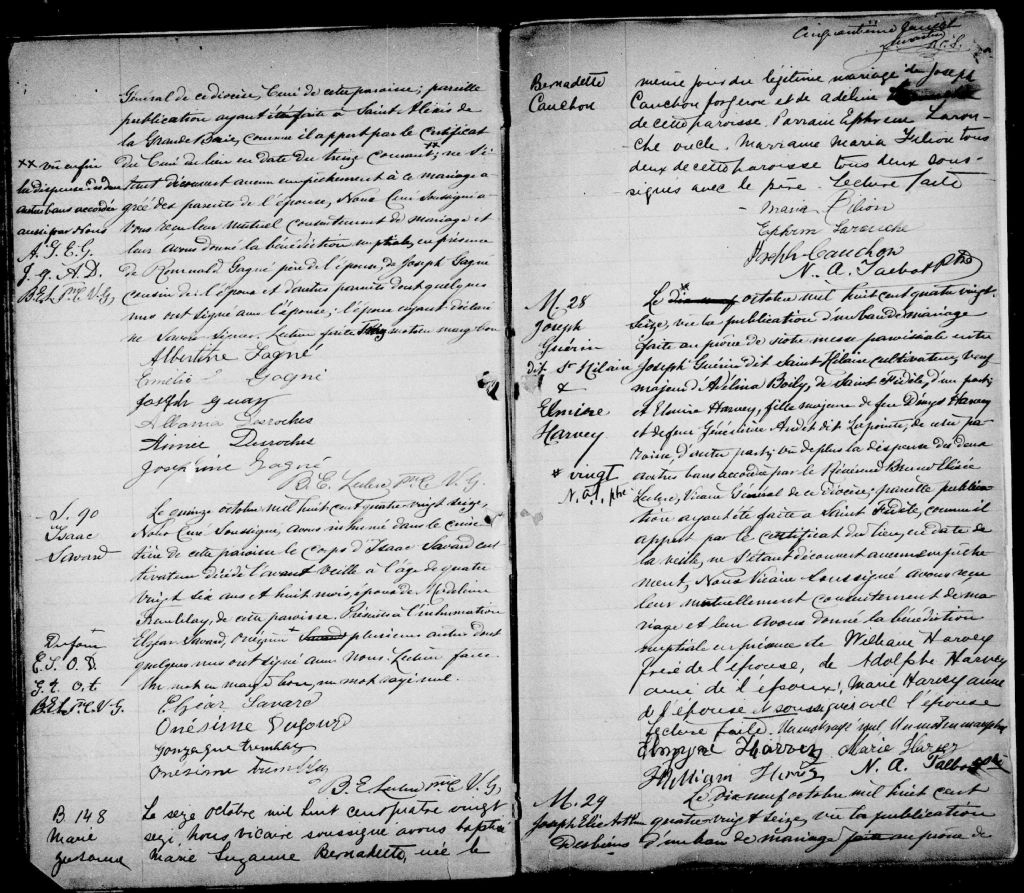 Général de ce diocèse, Curé de cette paroisse; pareille
publication ayant été faite à Saint Alexis de
la Grande Baie, comme il appert par le certificat
du Curé du lieu en date du treize courant, ne s'é-
tant découvert aucun empêchement à ce mariage a-
gréé des parents de l'épouse, Nous Curé soussigné a-
vons reçu leur mutuel consentement de mariage et
leur avons donné la bénédiction nuptiale en présence
de Romuald Gagné père de l'épouse, de Joseph Gagné
cousin de l'époux et d'autres parents dont quelques
uns ont signé avec l'épouse; l'époux ayant déclaré
ne savoir signer. Lecture faite. mots en marge bons
** vu enfin
la dispense des deux
autres bans accordée
aussi par Nous
A. G. E. G.
J. g. A. D.
B. E. L. Ptre C. V. G.
Albertine Gagné
Gagné
Joseph guay
Albama Desroches
Aimée Desroches
Joséphine Gagné
B. E. Leclerc Ptre C. V. G.
S. 90
Isaac
Savard
Le quinze octobre mil huit cent quatre vingt seize,
Nous Curé Soussigné, avons inhumé dans le cime-
tière de cette paroisse le corps d'Isaac Savard cul-
tivateur décédé l'avant veille à l'âge de quatre
vingt six ans et huit mois, époux de Madeleine
Tremblay, de cette paroisse. Présents à l'inhumation
Elzéar Savard, Onésime Savard plusieurs autres dont
quelques uns ont signé avec Nous. Lecture faite.
Un mot en marge bon, un mot rayé nul.
Dufour
E. S. O. D.
G. t. O. t.
B. E. L. Ptre C. V. G.
Elzear Savard
Onésime Dufour
Gonzague tremblay
Onésime tremblay
B. E. Leclerc Ptre C. V. G.
B 148
Marie
Suzanne
Le seize octobre mil huit cent quatre vingt
seize, nous vicaire soussigné avons baptisé
Marie Suzanne Bernadette, née le
Cinquantième feuillet
Bernadette
Cauchon
même jour du légitime mariage de Joseph
Cauchon forgeron et de Adeline
de cette paroisse. Parrain Ephrem Larou-
che oncle. Marraine Maria Filion tous
deux de cette paroisse tous deux sous-
signés avec le père. Lecture faite
Maria Filion
Ephrem Larouche
Joseph Cauchon
N. A. Talbot Ptre
M. 28
Joseph
Guérin
dit St Hilaire
&
Elmire
Harvey
* vingt
N. A. T. ptre
Le dix neuf * octobre mil huit cent quatre vingt-
seize, vu la publication d'un ban de mariage
faite au prône de notre messe paroissiale entre
Joseph Guérin dit Saint Hilaire cultivateur, veuf
majeur d'Adelina Boily, de Saint Fidèle, d'un part;
et Elmire Harvey, fille majeure de feu Denys Harvey
et de feue Geneviève Audet dit Lapointe, de cette pa-
roisse, d'autre part; vu de plus la dispense des deux
autres bans accordée par le Révérend Bruno Elisée
Leclerc, Vicaire Général de ce diocèse; pareille publica-
tion ayant été faite à Saint Fidèle, comme il
appert par le certificat du lieu, en date de
la veille, ne s'étant découvert aucun empêche-
ment, Nous Vicaire Soussigné avons reçu
leur mutuellement consentement de ma-
riage et leur avons donné la bénédiction
nuptiale en présence de William Harvey
frère de l'épouse, de Adolphe Harvey
ami de l'époux, Marie Harvey amie
de l'épouse soussignés avec l'épouse
Lecture faite. Un mot rayé nul. Un mot en marge bon
Harvey Marie Harvey
William N. A. Talbot ptre
M. 29
Joseph Elie Arthur
Desbiens
Le Dix neuf octobre mil huit cent
quatre vingt & Seize, vu la publication
d'un ban de mariage faite au prône de